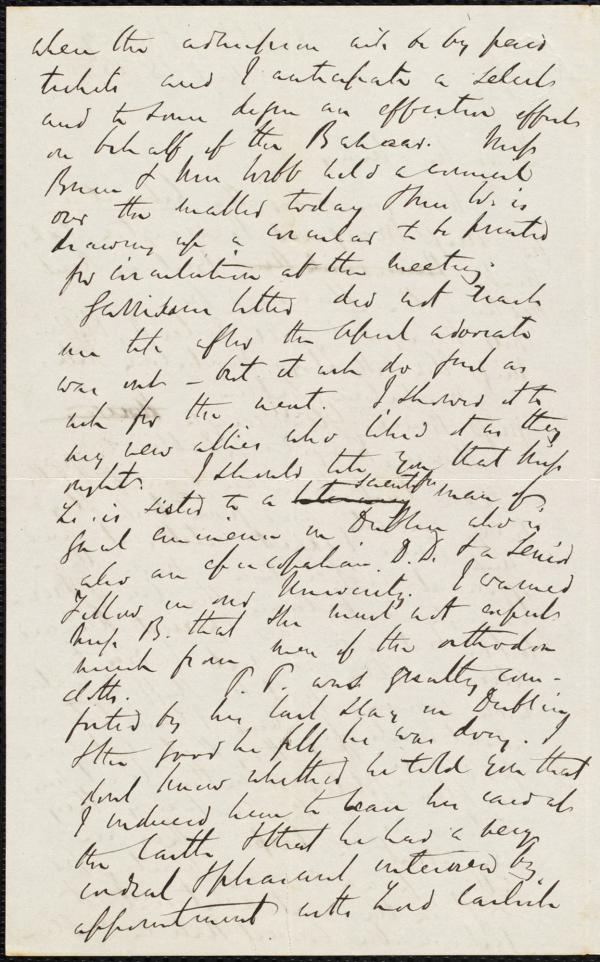 when the admission will be by paid
tickets and I anticipate a select
and to some degree an effective effort
on behalf of the Bazaar. Miss
& Mrs Webb held a council
over the matter today & Mrs W. is
drawing up a circular to be printed
for circulation at the meeting.
Garrison's letter did not reach
me till after the April advocate
was out - but it will do just as
well for the next. I showed it to
my new allies who liked it as they
ought. I should tell you that Miss
is sister to a scientific man of
great eminence in Dublin who is
also an Episcopalian D.D. & a Senior
Fellow in our University. I warned
Miss B. that she must not expect
much from men of the orthodox
cloth. P.P. was greatly com-
forted by his last stay in Dublin &
the good he felt he was doing. I
dont know whether he told you that
I induced him to leave his card at
the Castle & that he had a very
cordial & pleasant interview by
appointment with Lord Carlisle